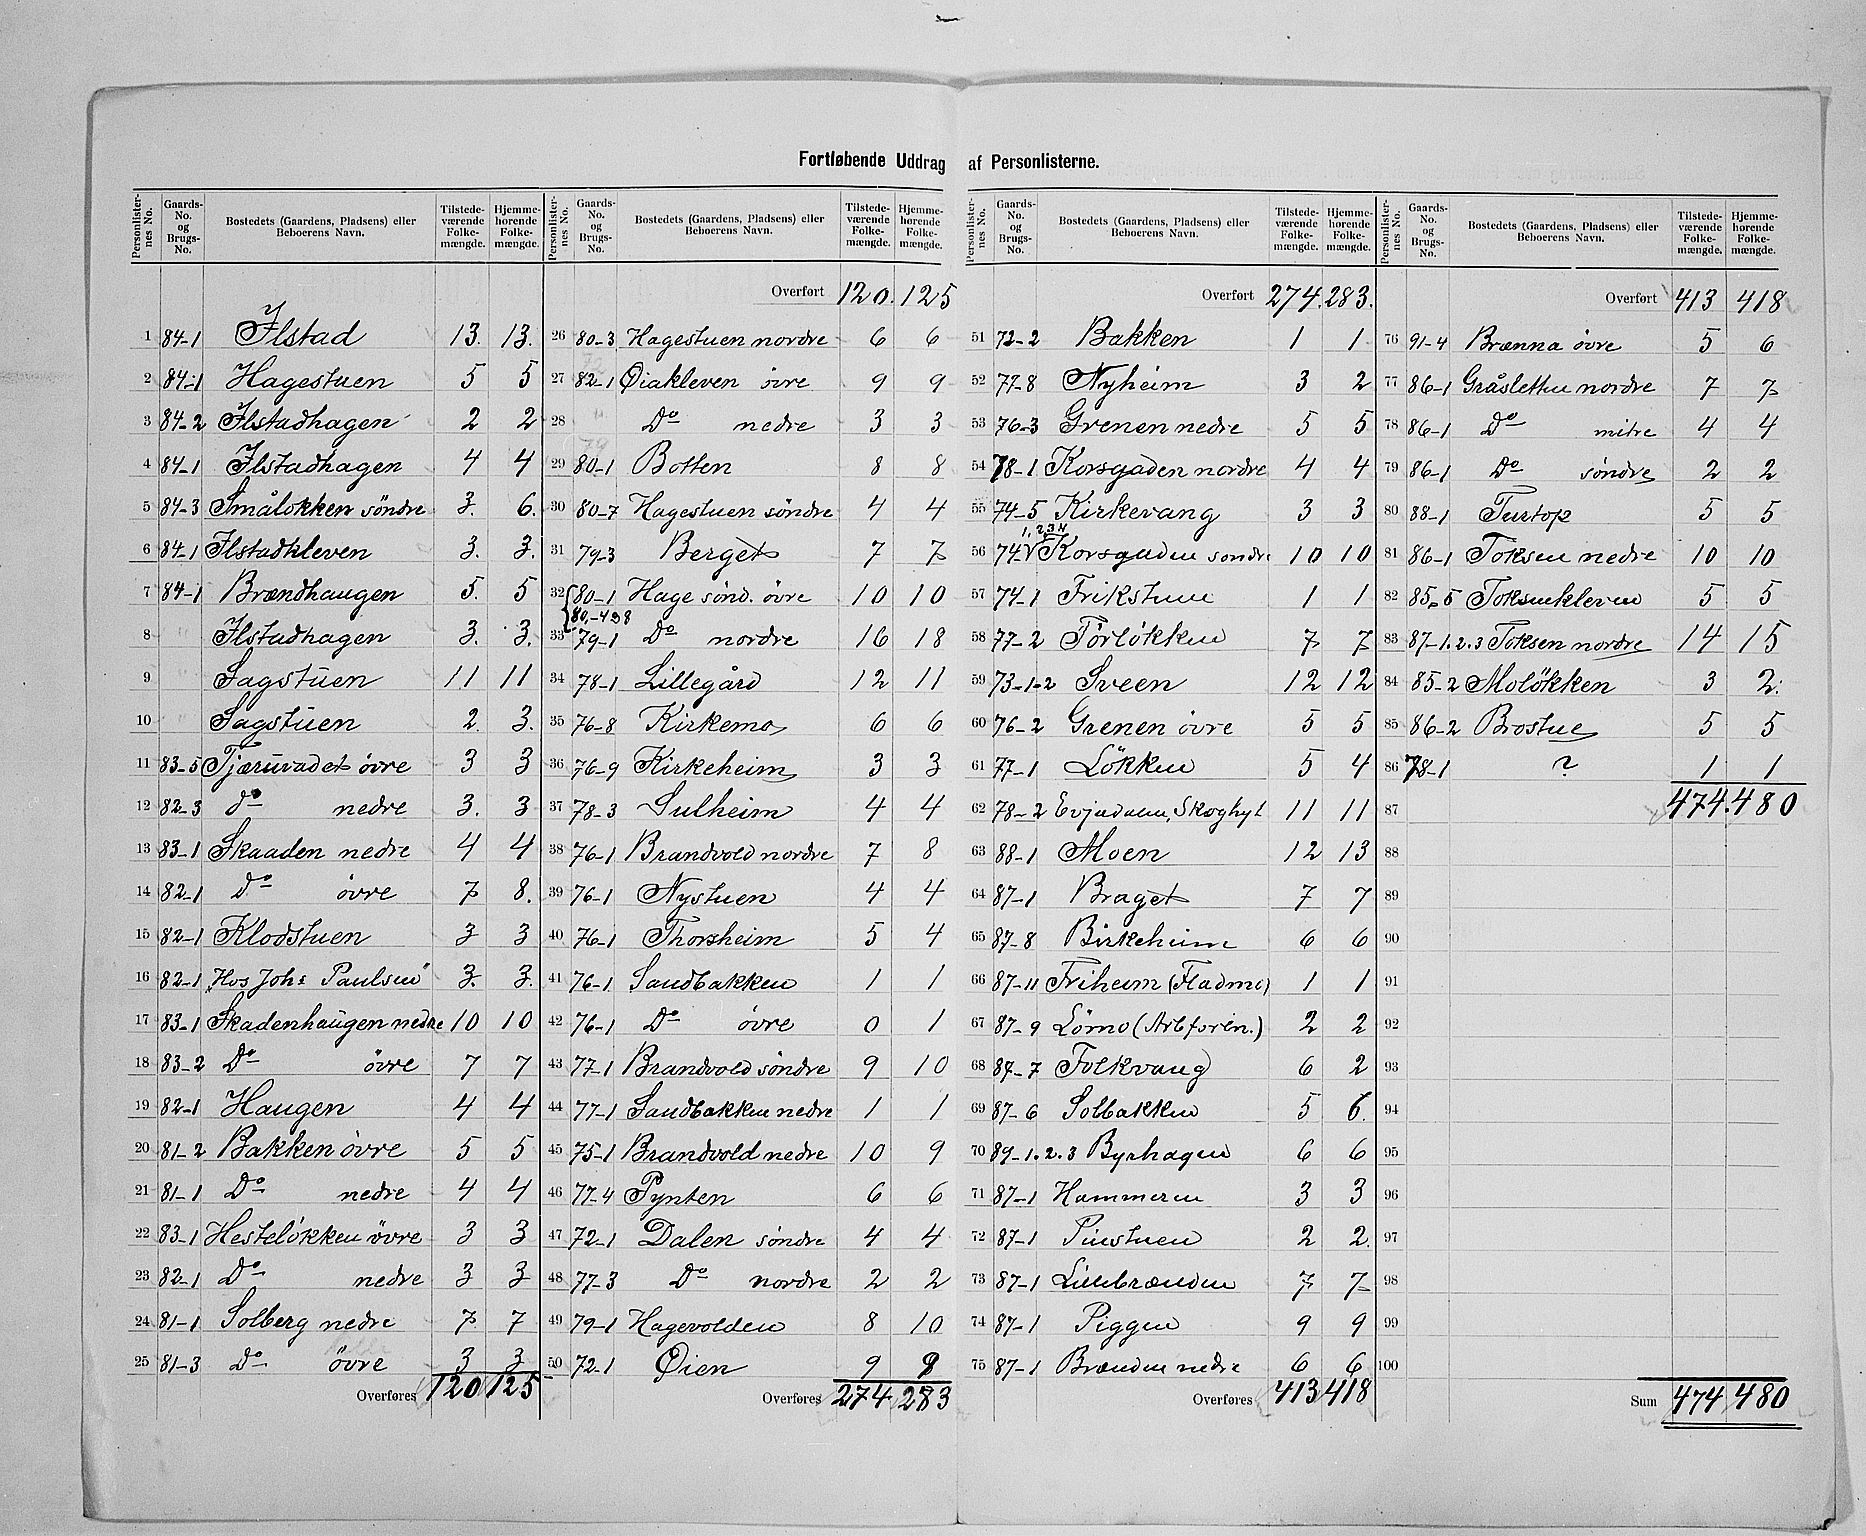 Fortløbende Uddrag af Personlisterne.
Personlisternes No. Gaards-No. og Brugs-No. Bostedets (Gaardens, Pladsens) eller Beboerens Navn. Tilstedeværende Folkemængde. Hjemmehørende Folkemængde.
1 84-1 Ilstad 13. 13.
2 84-1 Hagestuen 5 5
3 84-2 Ilstadhagen 2 2
4 84-1 Ilstadhagen 4 4
5 84-3 Smålökken söndre 3. 6.
6 84-1 Ilstadkleven 3. 3.
7 84-1 Brændhaugen 5. 5
8 " Ilstadhagen 3. 3.
9 Sagstuen 11 11
10 " Sagstuen 2. 3.
11 83-5 Tjæruvadet övre 3 3
12 82-3 do nedre 3. 3
13 83-1 Skaaden nedre 4 4
14 82-1 Do övre 7 8.
15 82-1 Klodstuen 3 3
16 82-1 Hos Johs Paulsen 3. 3.
17 83-1 Skadenhaugen nedre 10 10
18 83-2 Do övre 7 7
19 82-1 Haugen 4 4
20 81-2 Bakken övre 5 5
21 81-1 Do nedre 4 4
22 83-1 Hestelökken övre 3 3
23 82-1 Do nedre 3 3
24 81-1 Solberg nedre 7 7
25 81-3 Do övre 3 3
Overføres 120 125
Personlisternes No. Gaards-No. og Brugs-No. Bostedets (Gaardens, Pladsens) eller Beboerens Navn. Tilstedeværende Folkemængde. Hjemmehørende Folkemængde.
Overført 120. 125
26 80-3 Hagestuen nordre 6 6
27 82-1 Öiakleven övre 9 9
28 " Do nedre 3 3
29 80-1 Botten 8 8
30 80-7 Hagestuen söndre 4 4
31 79-3 Berget 7 7
32 80-1 Hage sönd. övre 10 10
80,-4 8
33 79-1 Do nordre 16 18
34 78-1 Lillegård 12 11
35 76-8 Kirkemo 6 6
36 76-9 Kirkeheim 3 3
37 78-3 Sulheim 4 4
38 76-1 Brandvold nordre 7 8
39 76-1 Nystuen 4 4
40 76-1 Thorsheim 5 4
41 76-1 Sandbakken 1 1
42 76-1 Do övre 0 1
43 77-1 Brandvold söndre 9 10
44 77-1 Sandbakken nedre 1 1
45 75-1 Brandvold nedre 10 9
46 77-4 Pynten 6 6
47 72-1 Dalen söndre 4 4
48 77-3 Do nordre 2 2
49 79-1 Hagevolden 8 10
50 72-1 Öien 9 9
Overføres 274 283
Personlisternes No. Gaards-No. og Brugs-No. Bostedets (Gaardens, Pladsens) eller Beboerens Navn. Tilstedeværende Folkemængde. Hjemmehørende Folkemængde.
Overført 274. 283.
51 72-2 Bakken 1 1
52 77-8 Nyheim 3 2
53 76-3 Grenen nedre 5 5
54 78-1 Korsgaden nordre 4 4
55 74-5 Kirkevang 3 3
1, 2 3 4
56 74 V Korsgaden sondre 10 10
57 74-1 Frikstuen 1 1
58 77-2 Törlökken 7 7
59 73-1-2 Sveen 12 12
60 76-2 Grenen övre 5 5
61 77-1 Lökken 5 4
62 78-2 Evjudauen, Skoghyt 11 11
63 88-1 Moen 12 13
64 87-1 Braget 7 7
65 87-8 Birkeheim 6 6
66 87-11 Friheim (Fladmo) 1 1
67 87-9 Lömo (Arbforen.) 2 2
68 87-7 Folkvang 6 2
69 87-6 Solbakken 5 6.
70 89-1.2.3 Byrhagen 6 6
71 87-1 Hammeren 3 3
72 87-1 Pinstuen 2 2.
73 87-1 Lillebrænden 7 7
74 87-1 Piggen 9 9
75 87-1 Brænden nedre 6 6
Overføres 413 418
Personlisternes No. Gaards-No. og Brugs-No. Bostedets (Gaardens, Pladsens) eller Beboerens Navn. Tilstedeværende Folkemængde. Hjemmehørende Folkemængde.
Overført 413 418
76 91-4 Brænna övre 5 6
77 86-1 Gråsletten nordre 7 7
78 86-1 Do mitre 4 4
79 86-1 Do söndre 2 2
80 88-1 Turtop 5 5
81 86-1 Toksen nedre 10 10
82 85-5 Toksenkleven 5 5
83 87-1.2.3 Toksen nordre 14 15
84 85-2 Molökken 3 2
85 86-2 Brostue 5 5
86 78-1 ? 1 1
87 474. 480
88
89
90
91
92
93
94
95
96
97
98
99
100
Sum 474 480